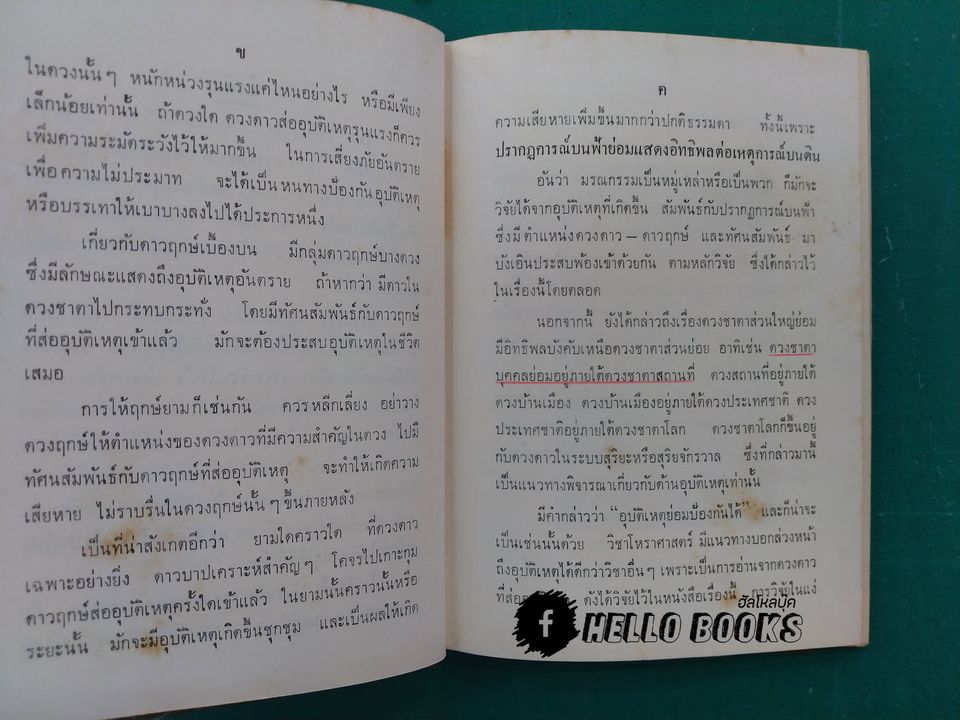 ข
ในดวงนั้นๆ หนักหน่วงรุนแรงแค่ไหนอย่างไร หรือมีเพียง
เล็กน้อยเท่านั้น ถ้าดวงใด ดวงดาวส่ออุบัติเหตุรุนแรงก็ควร
เพิ่มความระมัดระวังไว้ให้มากขึ้น ในการเสี่ยงภัยอันตราย
เพื่อความไม่ประมาท จะได้เป็นหนทางป้องกันอุบัติเหตุ
หรือบรรเทาให้เบาบางลงไปได้ประการหนึ่ง
เกี่ยวกับดาวฤกษ์เบื้องบน มีกลุ่มดาวฤกษ์บางดวง
ซึ่งมีลักษณะแสดงถึงอุบัติเหตุอันตราย ถ้าหากว่า มีดาวใน
ดวงชาตาไปกระทบกระทั่ง โดยมีทัศนสัมพันธ์กับดาวฤกษ์
ที่ส่ออุบัติเหตุเข้าแล้ว มักจะต้องประสบอุบัติเหตุในชีวิต
เสมอ
การให้ฤกษ์ยามก็เช่นกัน ควรหลีกเลี่ยง อย่าวาง
ดวงฤกษ์ให้ตำแหน่งของดวงดาวที่มีความสำคัญในดวง ไปมี
ทัศนสัมพันธ์กับดาวฤกษ์ที่ส่ออุบัติเหตุ จะทำให้เกิดความ
เสียหาย ไม่ราบรื่นในดวงฤกษ์นั้นๆ ขึ้นภายหลัง
เป็นที่น่าสังเกตอีกว่า ยามใดคราวใด ที่ดวงดาว
เฉพาะอย่างยิ่ง ดาวบาปเคราะห์สำคัญๆ โคจรไปเกาะกุม
ดาวฤกษ์ส่ออุบัติเหตุครั้งใดเข้าแล้ว ในยามนั้นคราวนั้นหรือ
ระยะนั้น มักจะมีอุบัติเหตุเกิดขึ้นชุกชุม และเป็นผลให้เกิด
ค
ความเสียหายเพิ่มขึ้นมากกว่าปกติธรรมดา ทั้งนี้เพราะ
ปรากฏการณ์บนฟ้าย่อมแสดงอิทธิพลต่อเหตุการณ์บนดิน
อันว่า มรณกรรมเป็นหมู่เหล่าหรือเป็นพวก ก็มักจะ
วิจัยได้จากอุบัติเหตุที่เกิดขึ้น สัมพันธ์กับปรากฏการณ์บนฟ้า
ซึ่งมีตำแหน่งดวงดาว — ดาวฤกษ์ และทัศนสัมพันธ์ มา
บังเอิญประสบพ้องเข้าด้วยกัน ตามหลักวิจัย ซึ่งได้กล่าวไว้
ในเรื่องนี้โดยตลอด
นอกจากนี้ ยังได้กล่าวถึงเรื่องดวงชาตาส่วนใหญ่ย่อม
มีอิทธิพลบังคับเหนือดวงชาตาส่วนย่อย อาทิเช่น ดวงชาตา
บุคคลย่อมอยู่ภายใต้ดวงชาตาสถานที่ ดวงสถานที่อยู่ภายใต้
ดวงบ้านเมือง ดวงบ้านเมืองอยู่ภายใต้ดวงประเทศชาติ ดวง
ประเทศชาติอยู่ภายใต้ดวงชาตาโลก ดวงชาตาโลกก็ขึ้นอยู่
กับดวงดาวในระบบสุริยะหรือสุริยจักรวาล ซึ่งที่กล่าวมานี้
เป็นแนวทางพิจารณาเกี่ยวกับด้านอุบัติเหตุเท่านั้น
มีคำกล่าวว่า “อุบัติเหตุย่อมป้องกันได้” และก็น่าจะ
เป็นเช่นนั้นด้วย วิชาโหราศาสตร์ มีแนวทางบอกล่วงหน้า
ถึงอุบัติเหตุได้ดีกว่าวิชาอื่นๆ เพราะเป็นการอ่านจากดวงดาว
ที่ส่อ ดังได้วิจัยไว้ในหนังสือเรื่องนี้ การวิจัยในแง่
ฮัลโหลบุ๊ค
f HELLO BOOKS